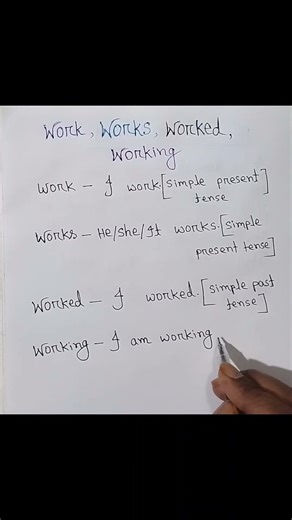 Work, Works, Worked,
Working
Work - I work. [simple present
tense]
Works - He/She/It works. [simple
present tense]
Worked - I worked. [simple past
tense]
Working - I am working